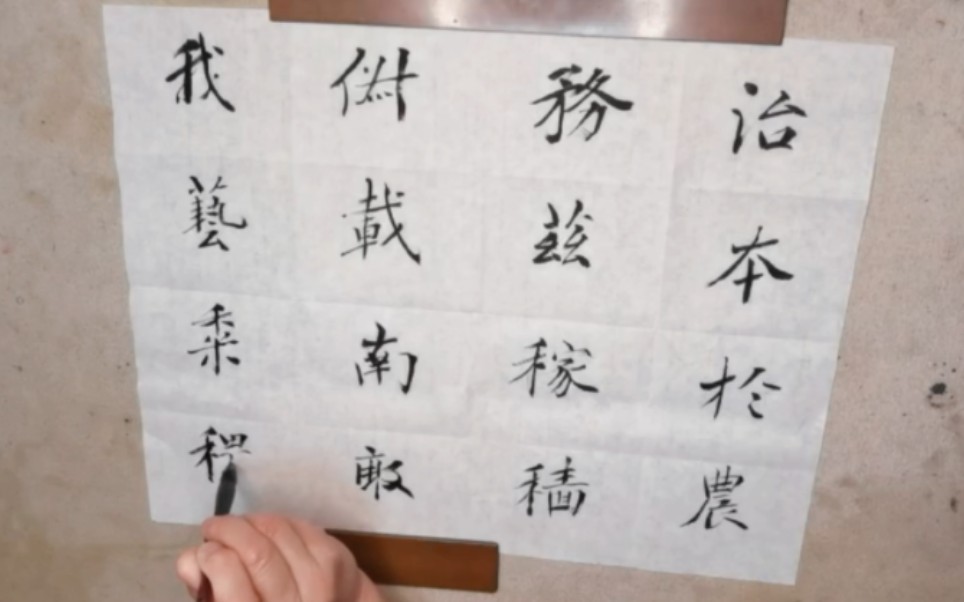 治本於農
務茲稼穡
俶載南畝
我藝黍